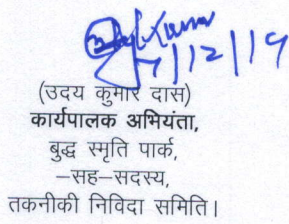 7/12/19
(उदय कुमार दास)
कार्यपालक अभियंता,
बुद्ध स्मृति पार्क,
–सह–सदस्य,
तकनीकी निविदा समिति।